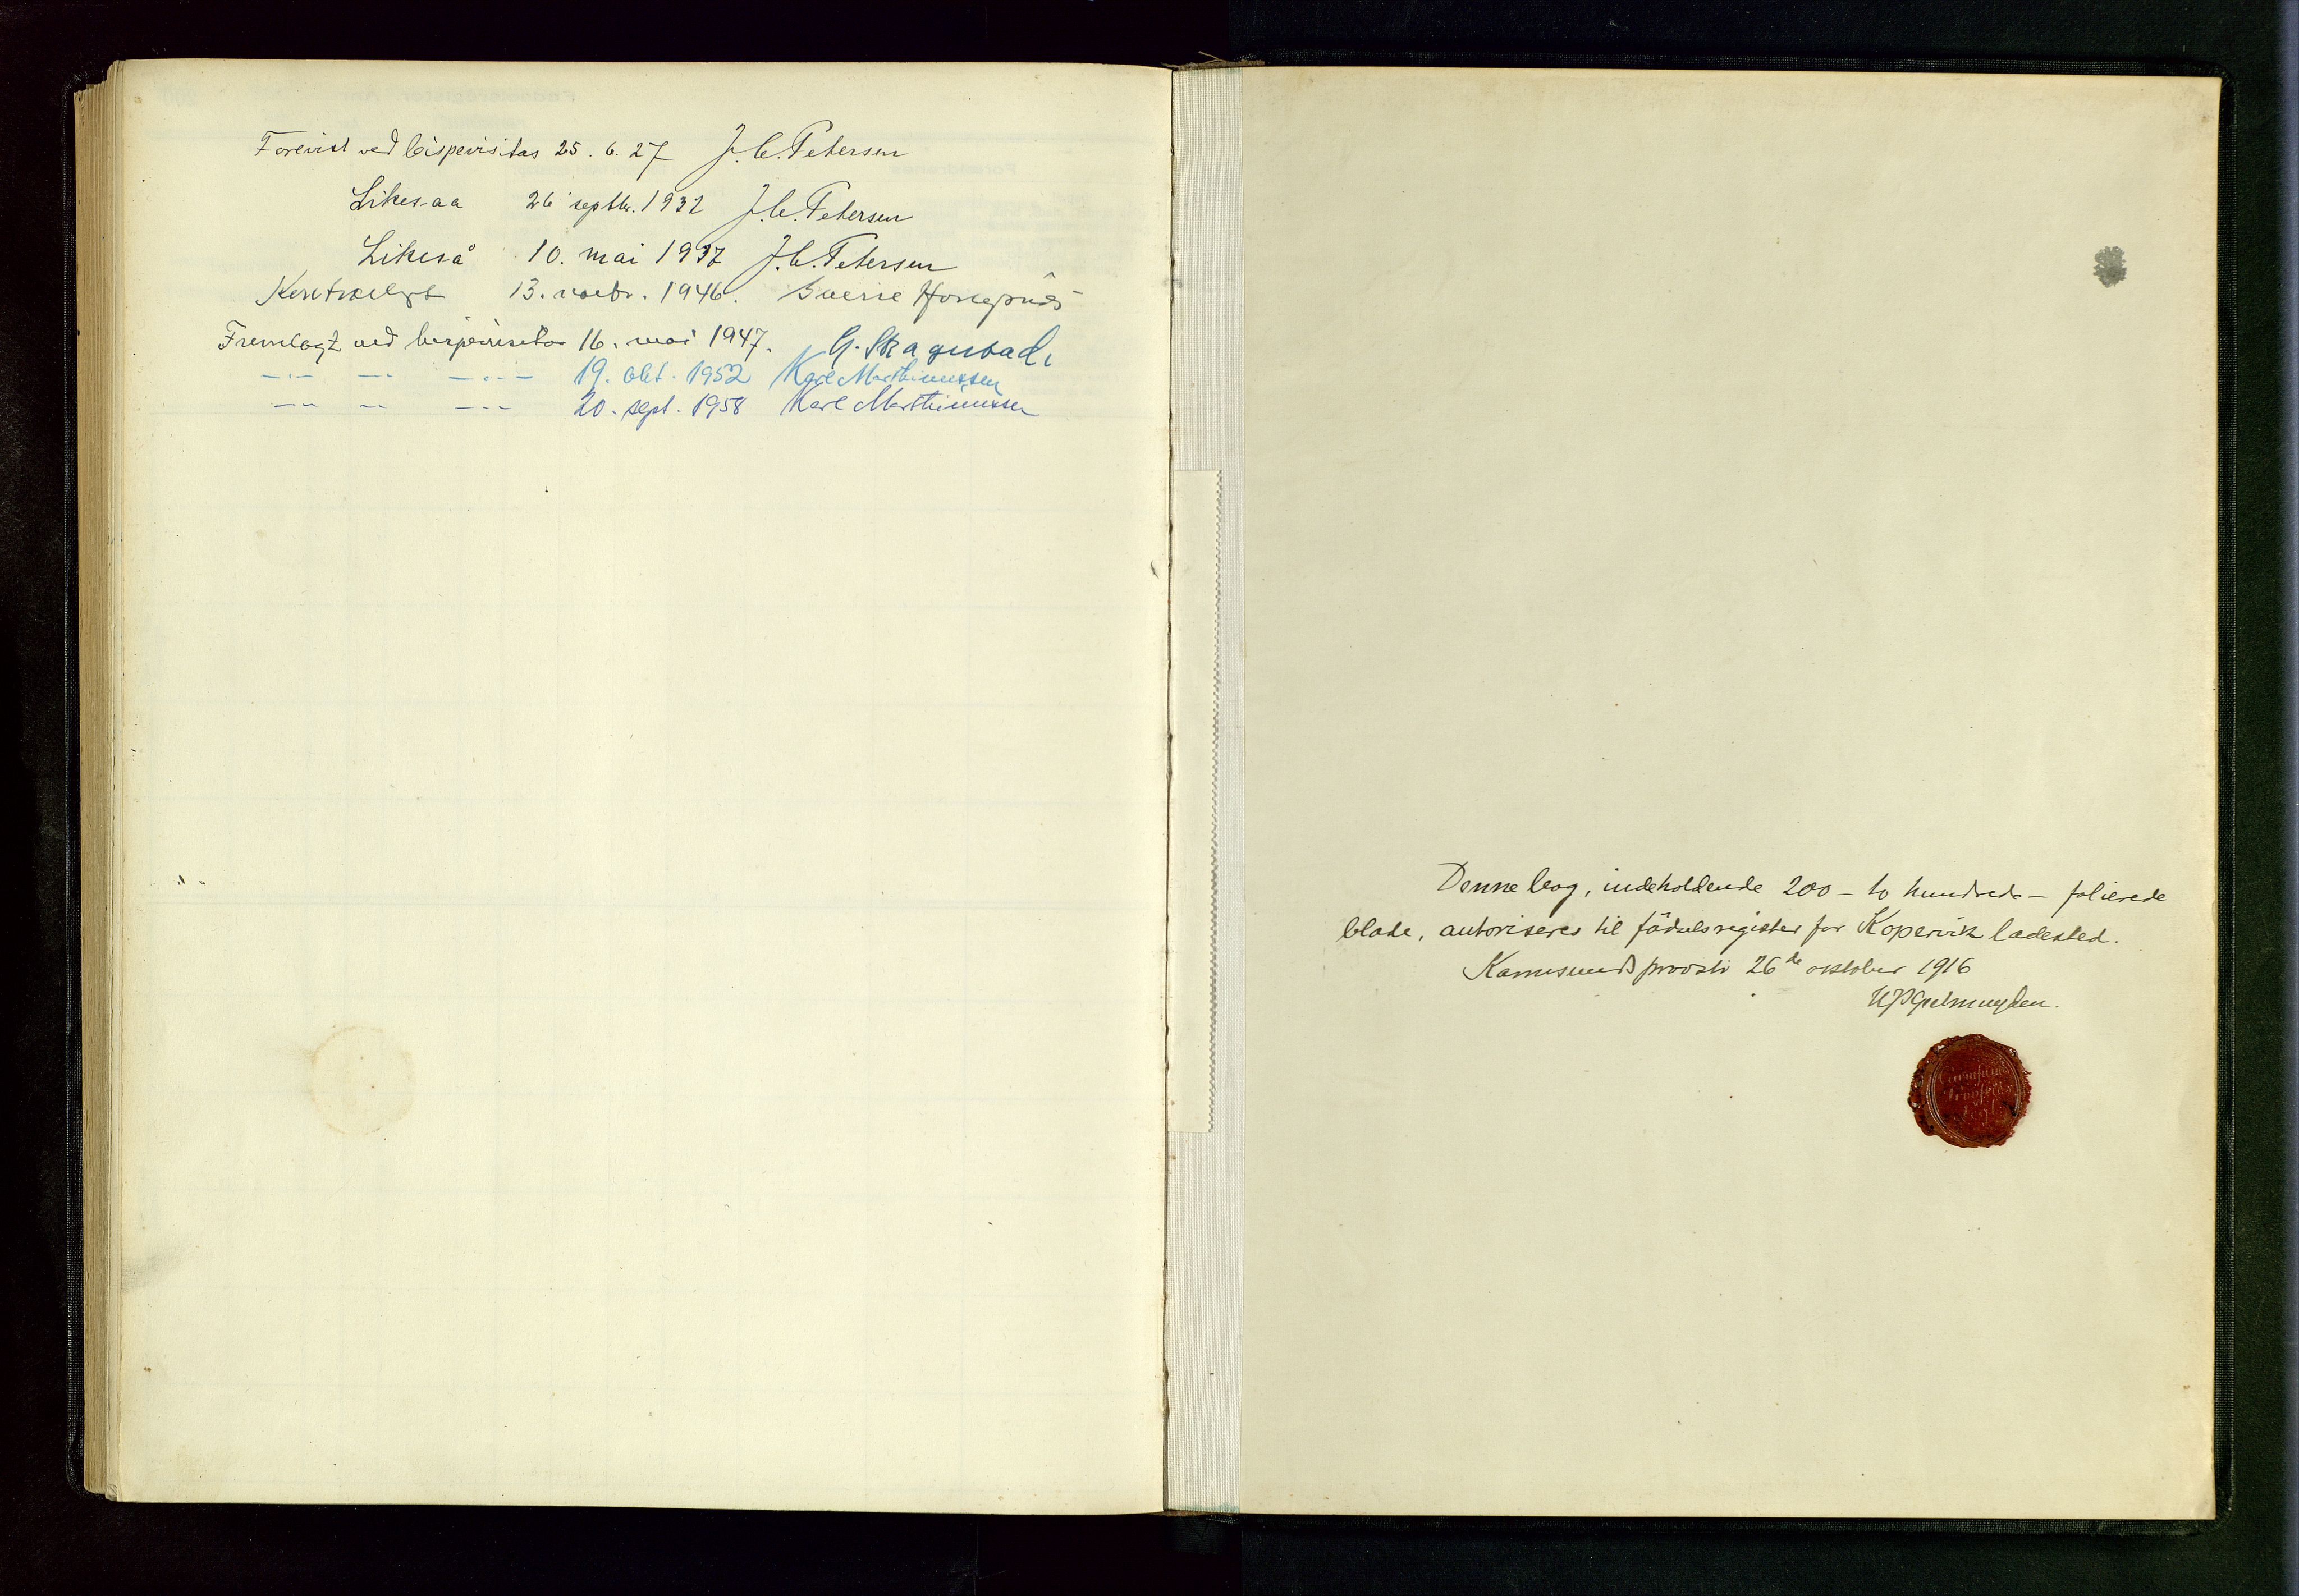 Forevist ved bispevisitas 25. 6. 27 J. C. Petersen
Likesaa 26 septbr. 1932 J. C. Petersen
Likeså 10. mai 1937 J. C. Petersen
13. novbr. 1946. Sverre
Fremlagt ved bispevisitas 16. mai 1947. G. Skagestad
—〃— —〃— —〃— 19. okt. 1952 Karl Marthinussen
—〃— —〃— —〃— 20. sept. 1958 Karl Marthinussen
Denne bog, indeholdende 200 – to hundrede – folierede
blade, autoriseres til fødselsregister for Kopervik ladested.
Karmsunds provsti 26de oktober 1916
Gjelmuyden.